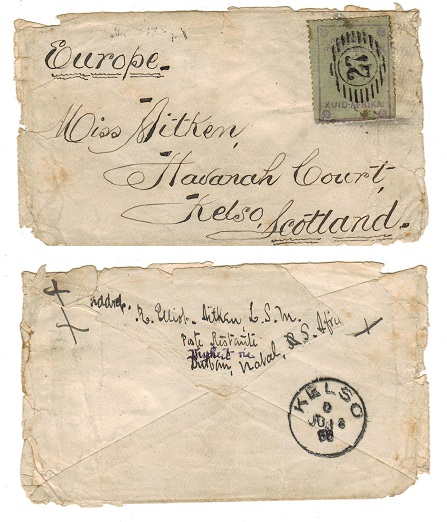 Europe.
27
ZUID-AFRIKA
Miss Aitken,
Havanah Court,
Kelso,
Scotland.
R. Elliot. Aitken, L.S.M.
Poste Restante
Durban, Natal, S. Afri
KELSO
JU
88